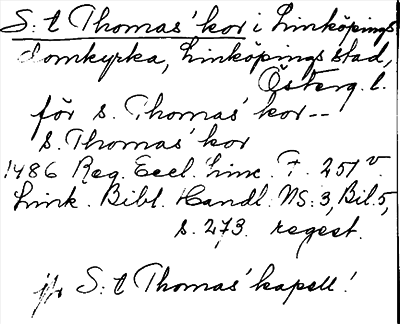 S:t Thomas' kor i Linköpings
domkyrka, Linköpings stad,
Österg. l.
för s. Thomas' kor--
s. Thomas' kor
1486 Reg. Eccl. Linc. F. 251 v.
Link. Bibl. Handl. NS: 3, Bil. 5,
s. 273. regest.
jfr S:t Thomas' kapell!